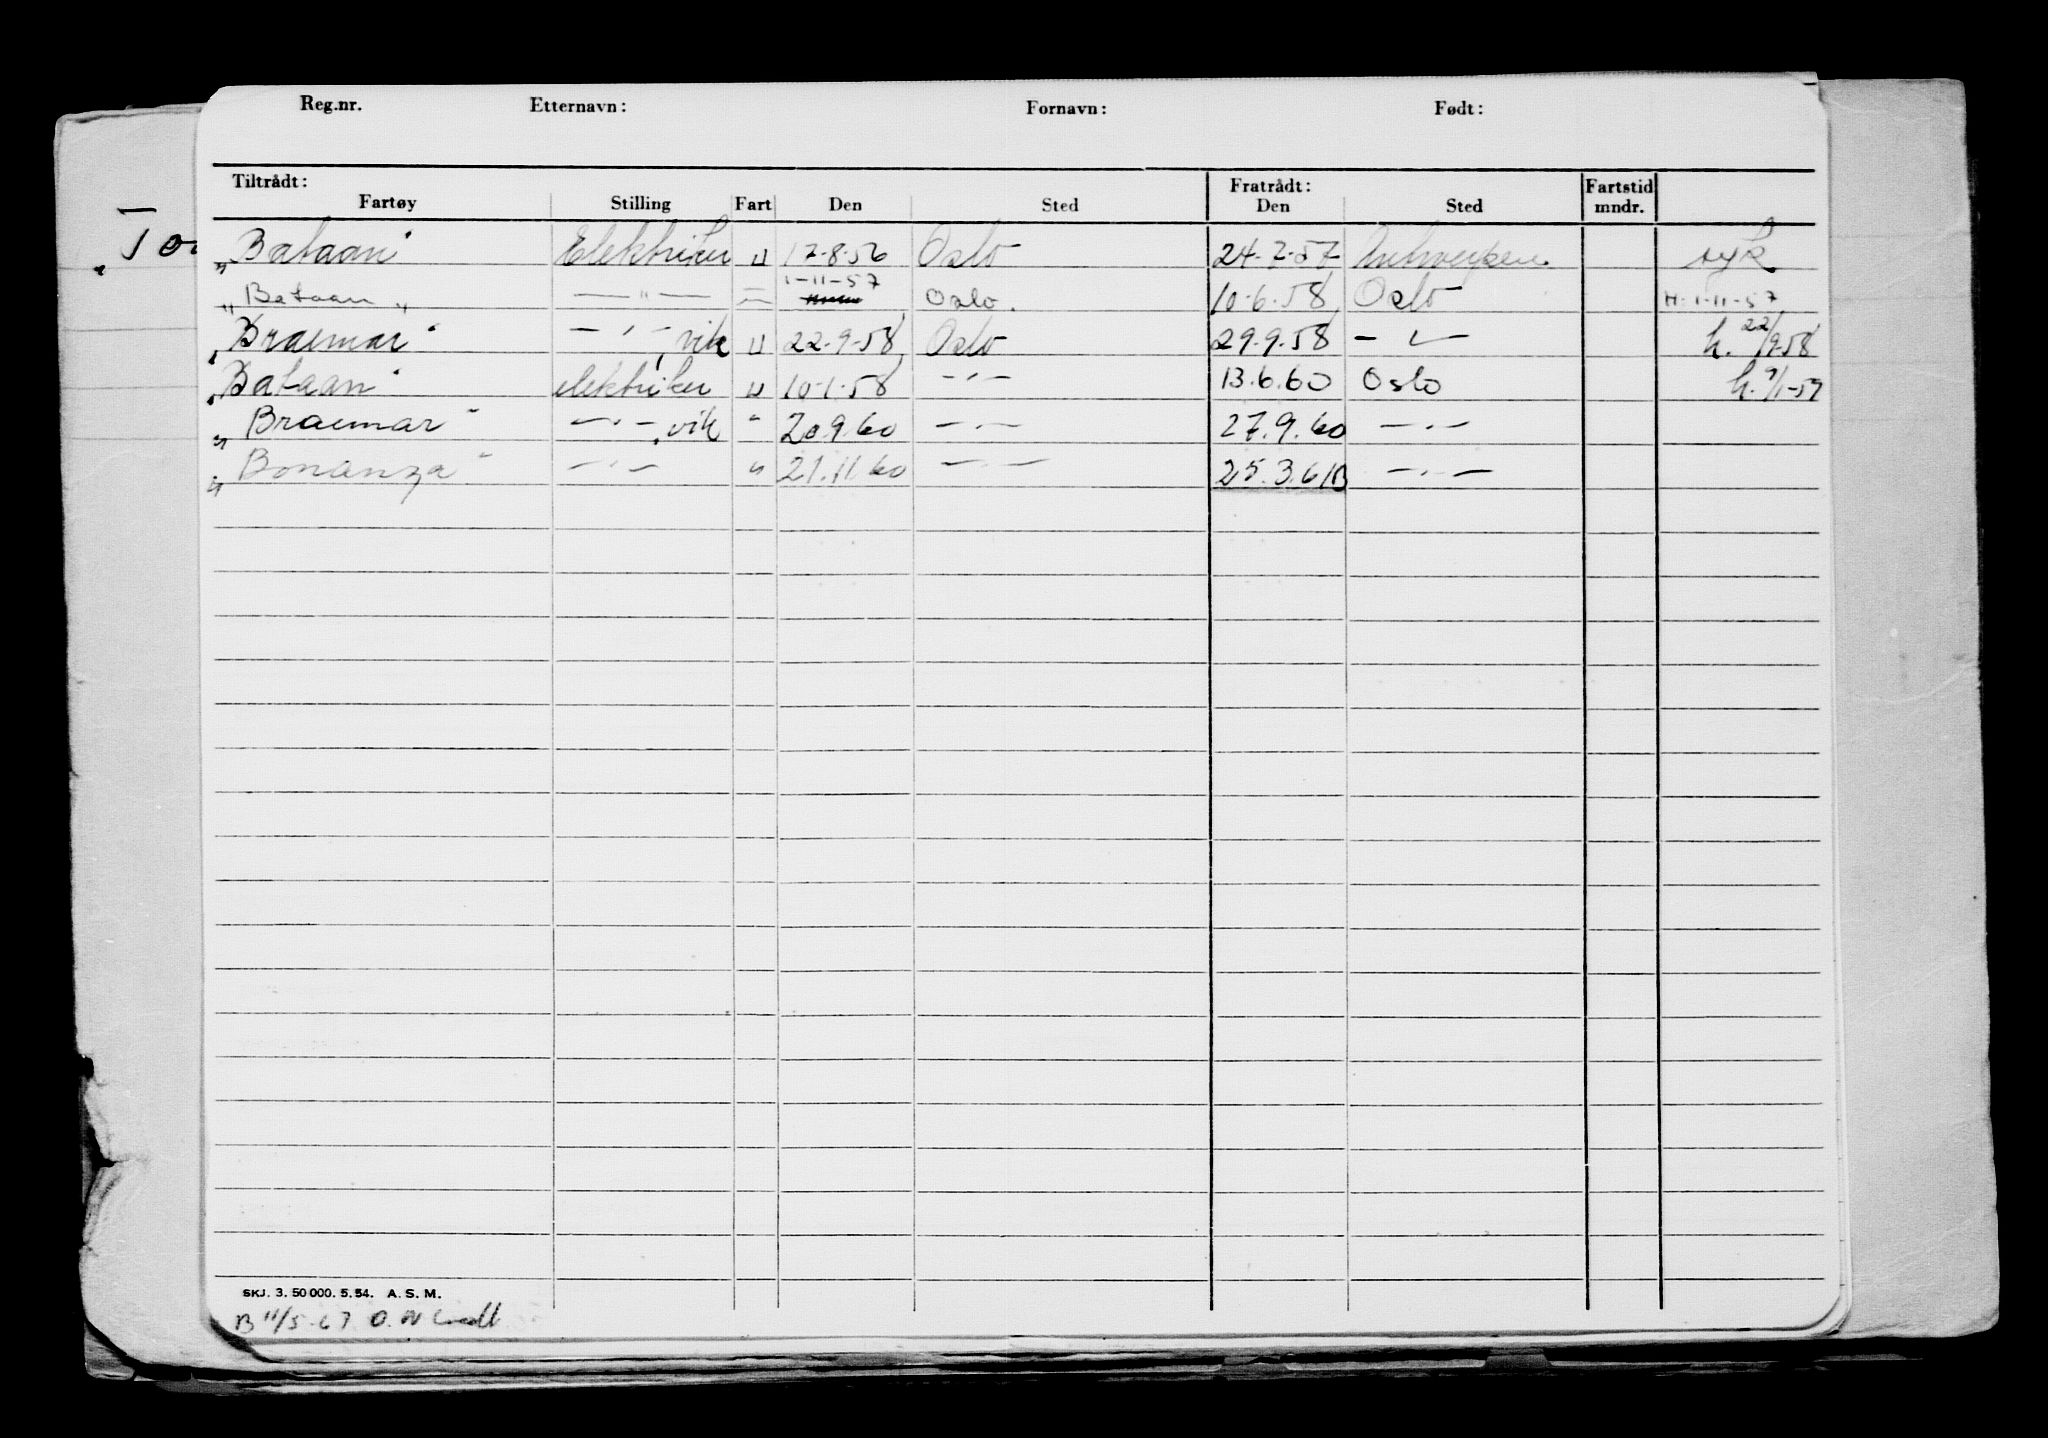 Reg.nr. Etternavn: Fornavn: Født:
Tiltrådt: Fratrådt: Fartstid
Fartøy Stilling Fart Den Sted Den Sted mndr.
„Bataan" Elektriker U 17-8-56 Oslo 24-7-57 Antwerpen syk
1-11-57
„Bataan" —"— = Oslo. 10-6-58 Oslo H. 1-11-57
„Braemar" —"—, vik U 22-9-58 Oslo 29.9.58 —"— h. 22/9-58
„Bataan" elektriker U 10-1-58 —"— 13.6.60 Oslo h. 9/1-59
„Braemar" —"—, vik " 20.9.60 —"— 27.9.60 —"—
„Bonanza" —"— " 21.11.60 —"— 25.3.61B —"—
SKJ. 3. 50 000. 5. 54. A. S. M.
B 11/5-67 O.